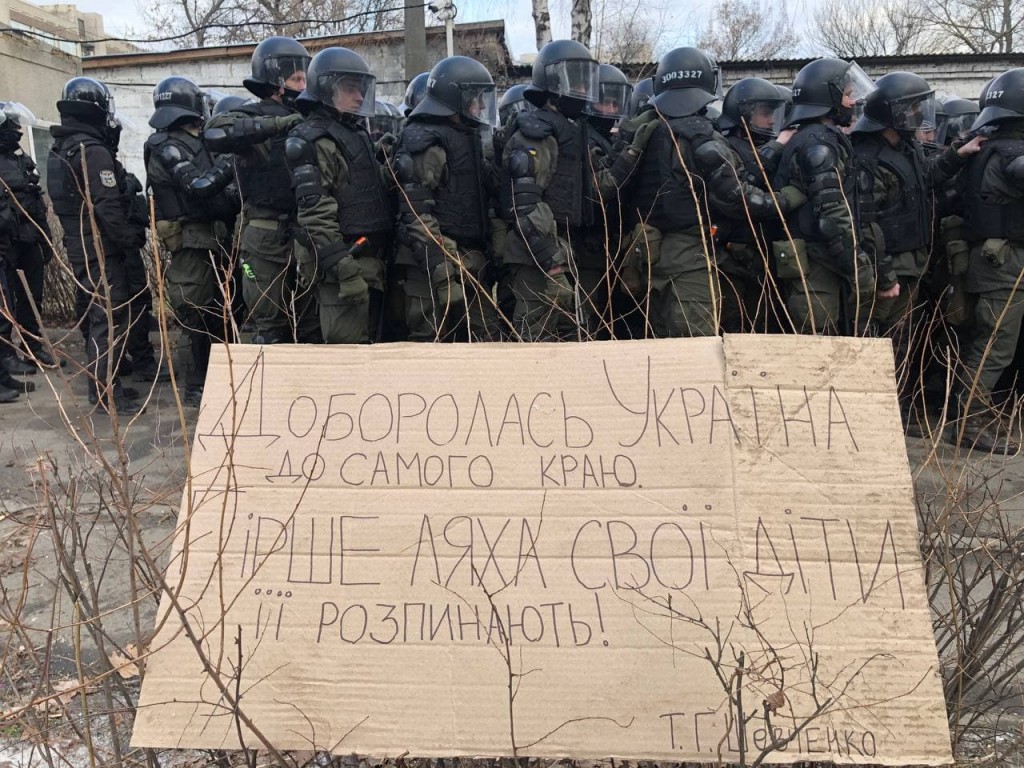 3003327
27
ДОБОРОЛАСЬ УКРАЇНА
ДО САМОГО КРАЮ.
ГІРШЕ ЛЯХА СВОЇ ДІТИ
ЇЇ РОЗПИНАЮТЬ!
Т.Г. Шевченко